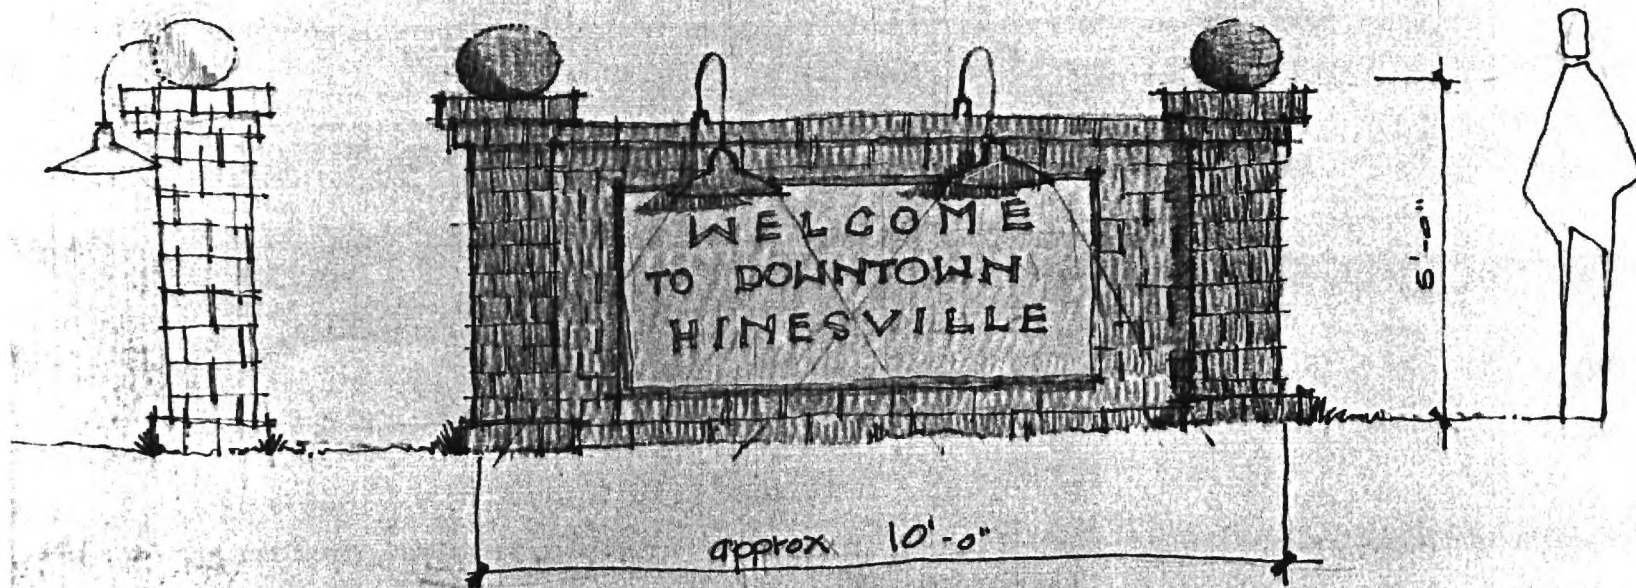 WELCOME
TO DOWNTOWN
HINESVILLE
6'-0"
approx 10'-0"